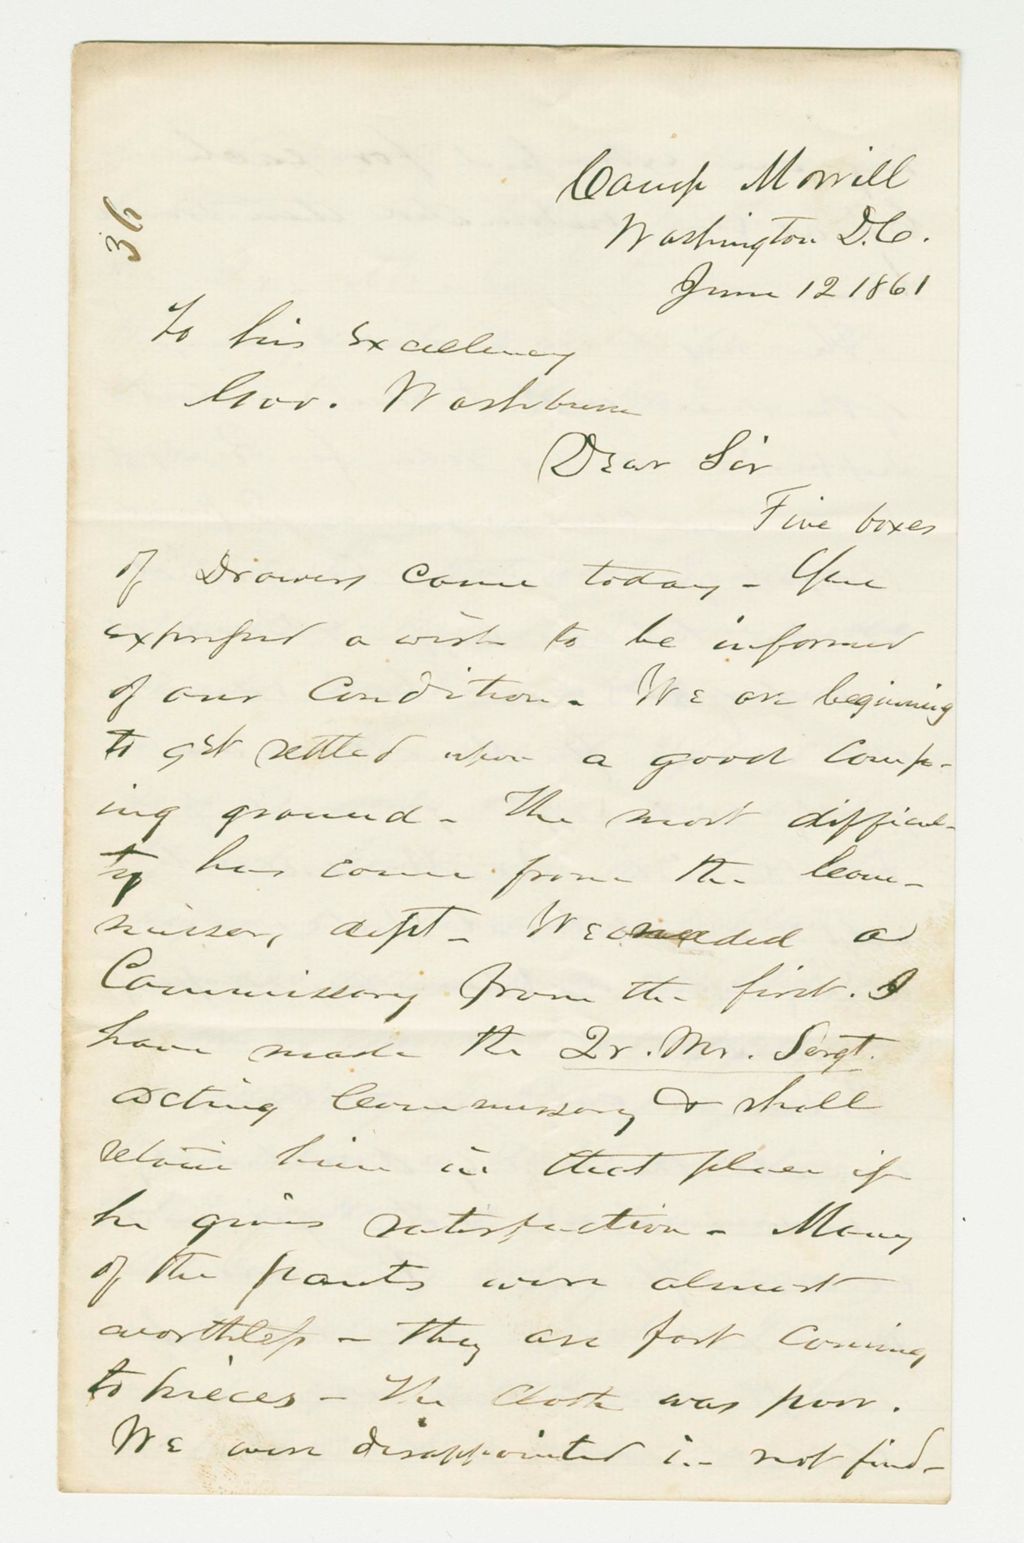 36
Camp Morrill
Washington D.C.
June 12 1861
To his Excellency
Gov. Washburn
Dear Sir
Five boxes
of Drawers came today - You
expressed a wish to be informed
of our Condition - We are beginning
to get settled upon a good camp-
ing ground - The most difficul-
ty has come from the Com-
missary dept - We needed a
Commissary from the first. I
have made the Qr. Mr. Sergt.
acting Commissary & shall
retain him in that place if
he gives satisfaction - Many
of the pants were almost
worthless - they are fast coming
to pieces - The cloth was poor.
We were disappointed in not find-